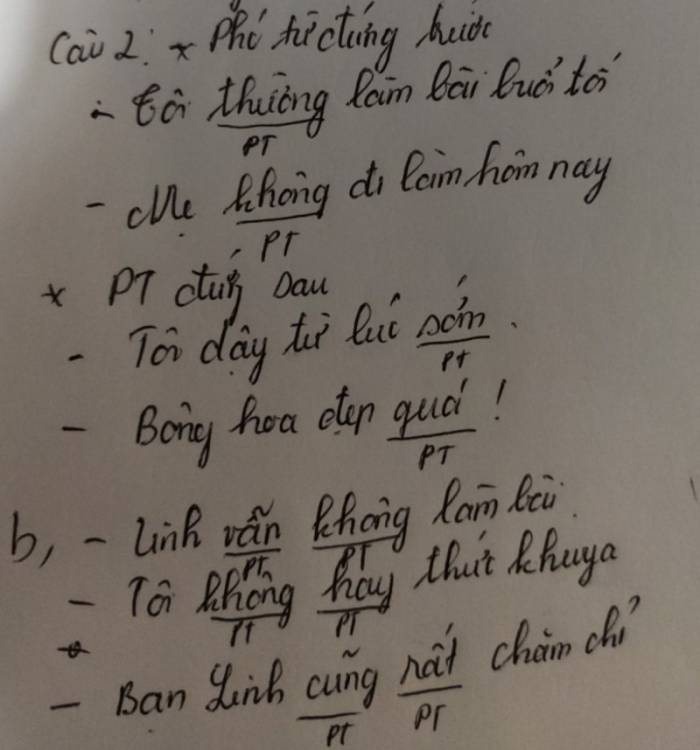 Câu 2: * Phó từ đứng trước
- Tôi thường làm bài buổi tối
PT
- Mẹ không đi làm hôm nay
PT
* PT đứng sau
- Tôi dậy từ lúc sớm.
PT
- Bông hoa đẹp quá!
PT
b, - Linh vẫn không làm bài.
PT PT
- Tôi không hay thức khuya
PT PT
- Bạn Linh cũng rất chăm chỉ
PT PT